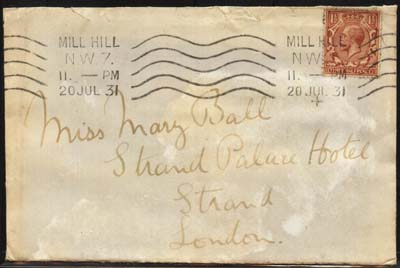 MILL HILL
N.W.7.
11. — PM
20 JUL 31
MILL HILL
N.W.
11. — PM
20 JUL 31
Miss Mary Ball
Strand Palace Hotel
Strand
London.